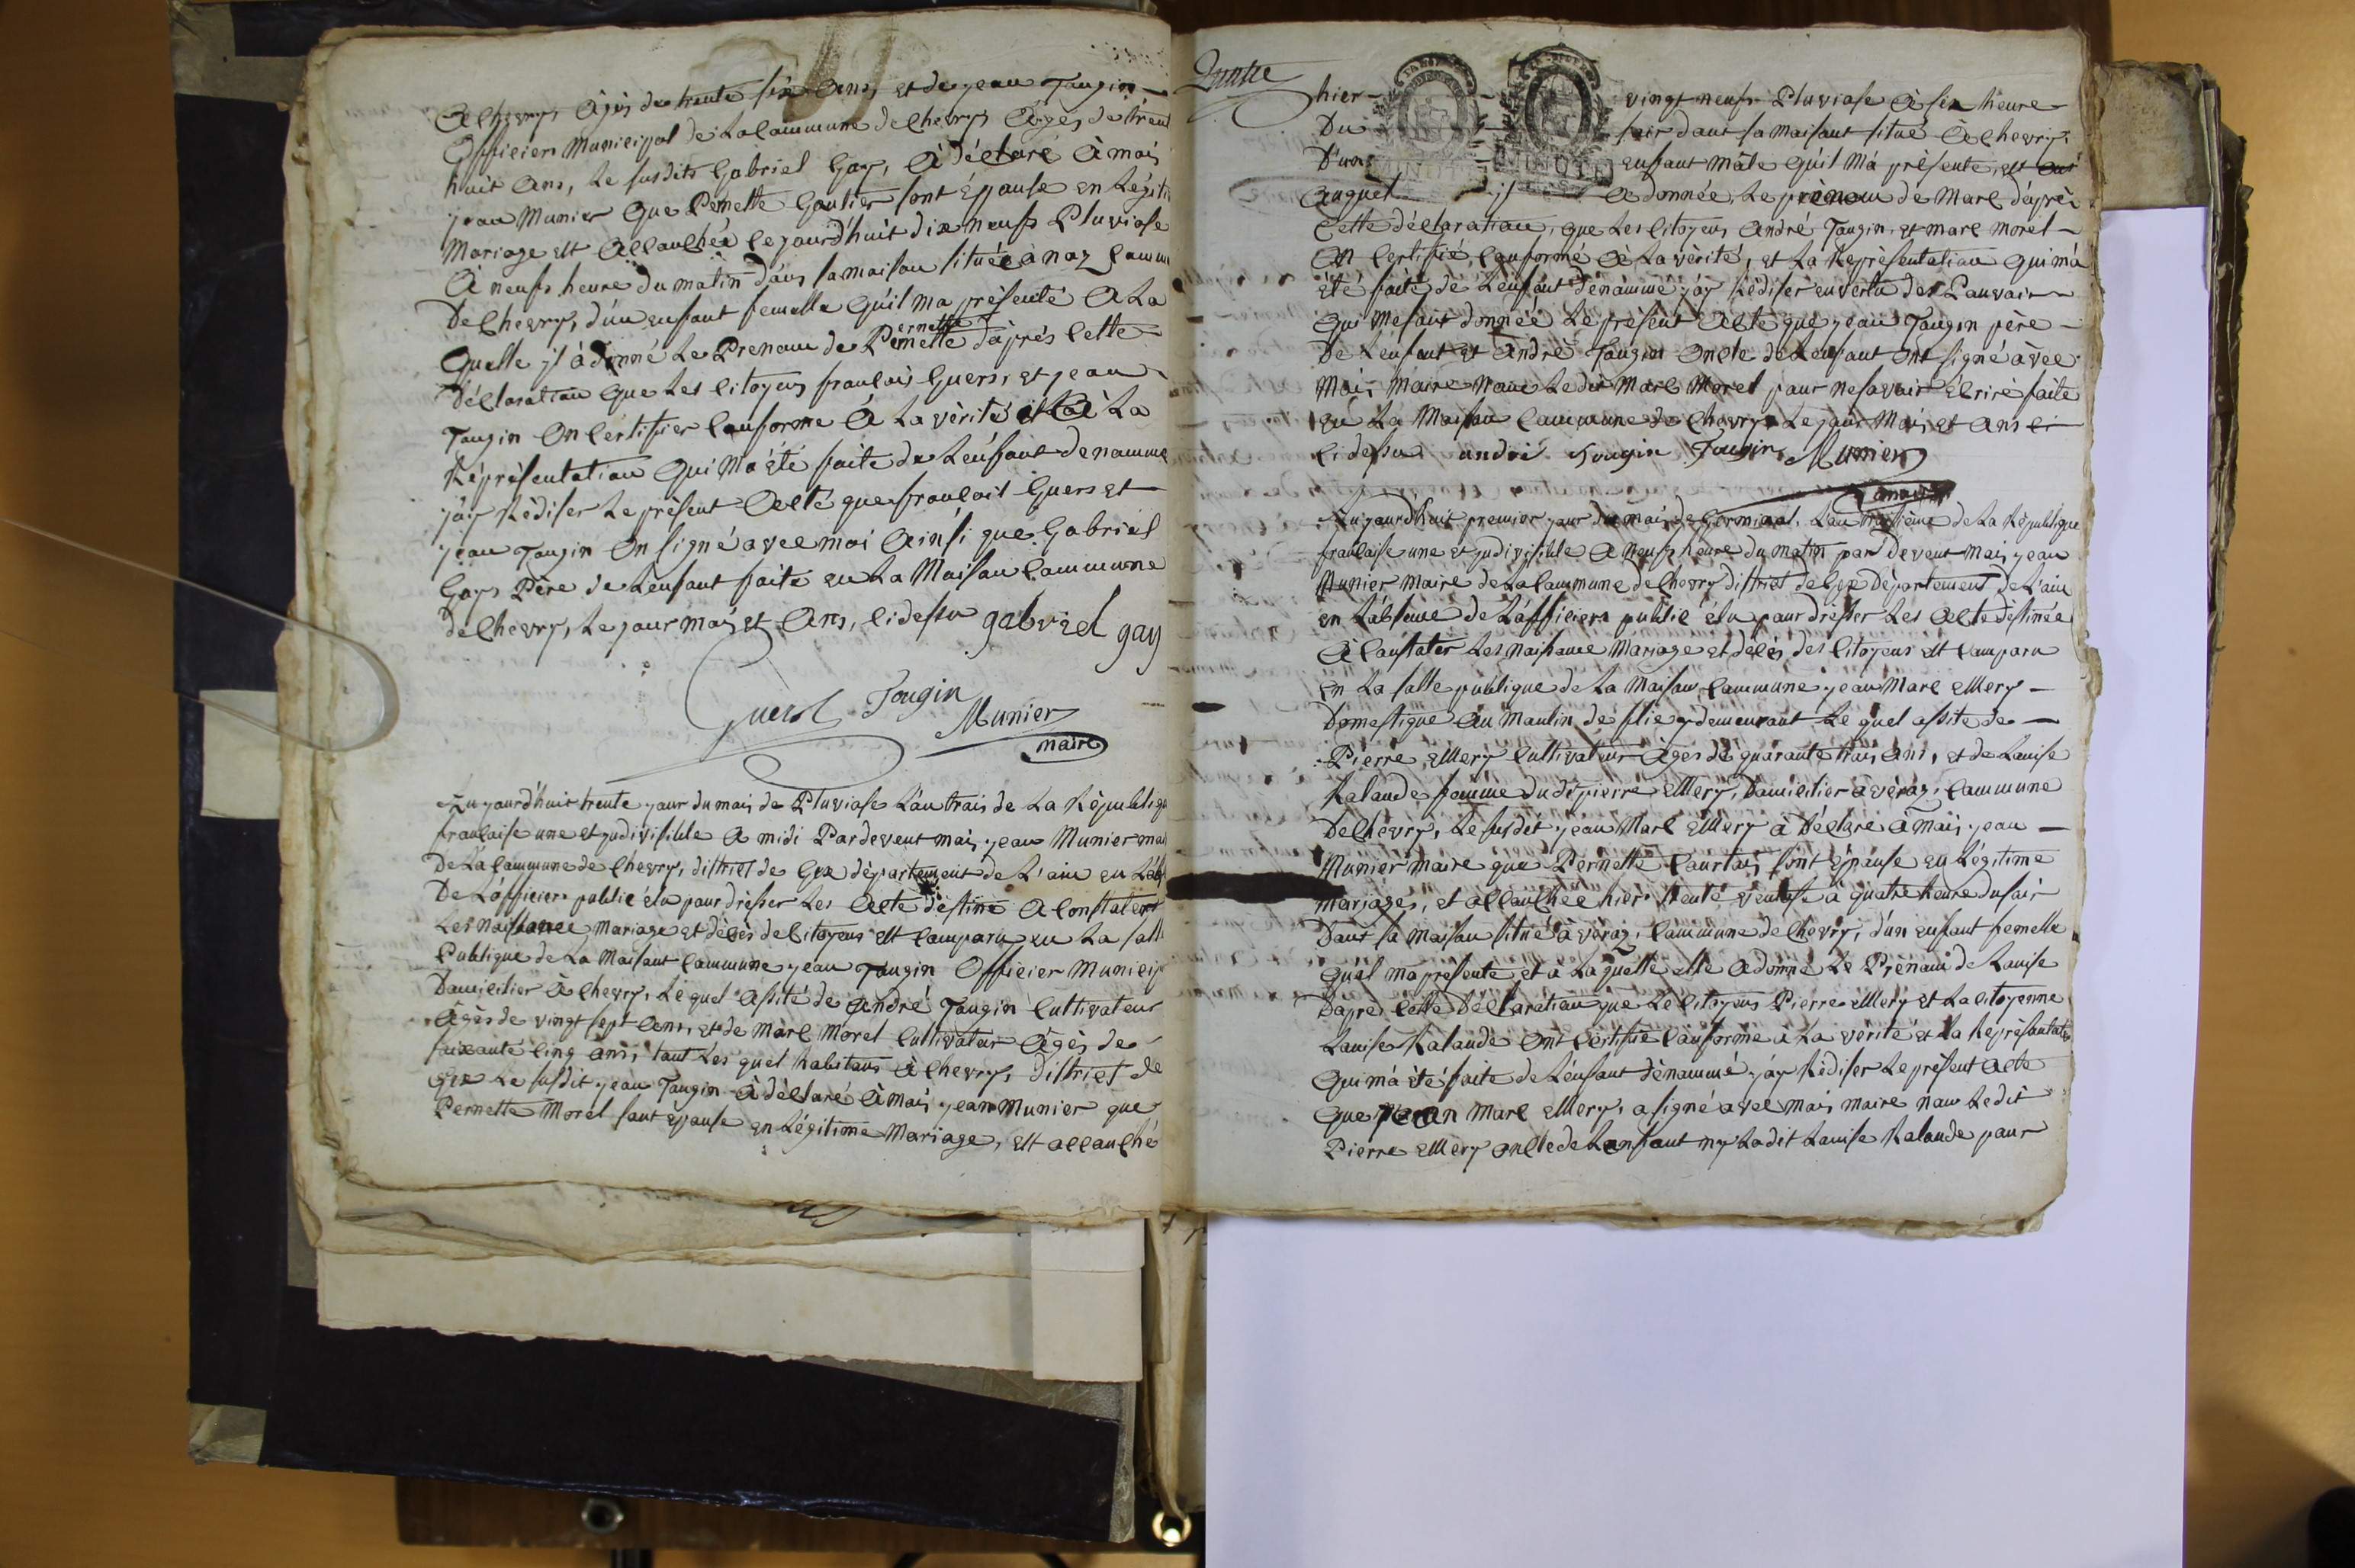 a chevry, âgés de trente six ans, et de jean Tougin
Officier Municipal de la Commune de chevry âgés de trent
huit ans, le susdits Gabriel Gay, à déclaré à moi
jean Munier que Pernette Goutier sont épouse en légiti
Mariage est accouchée le jourd'huit dix neufs Pluviose
à neufs heure du matin dans sa maison située à naz comm
De Chevry, d'un enfant femelle qu'il ma présenté a la
quelle il à donné le Prenom de Pernette d'après cette
ernette
Déclaration que les citoyens francois Guers, et jean
Tougin on certifier conforme à la vérité et la
Réprésentation qui ma été faite de l'enfant denommé
j'ay Rédiser le présent acte que francois Guers et
jean Tougin on signé avec moi ainsi que Gabriel
Gay Père de l'enfant faite en la Maison Commune
de Chevry, le jour mois et ans, ci dessu gabriel gay
Guers Tougin
Munier
maire
Aujourd'huit trente jour du mois de Pluviose l'an trois de la Républiqu
francaise une et jndivisible a midi Pardevent moi, jean Munier mai
De la Commune de Chevry, district de Gex département de L'ain en l'abs
De l'officier public élu pour dresser les acte destiné a Constater
les Naissance Mariage et décès de Citoyens est comparu en la sall
Publique de la Maisont Commune jean Tougin Officier Municip
Domicilier à Chevry, le quel assité de andré Tougin Cultivateur
âgés de vingt sept ans, et de Marc Morel Cultivateur âgés de
soixante cinq ans, tout les quel habitans à Chevry, district de
Gex le susdit jean Tougin à déclaré à moi jean Munier que
Pernette Morel sont épouse en légitime Mariage, est accouché
hier vingt neufs Pluviose à six heure
Du soir dant sa maisont situé à Chevry,
D'un enfant mâle qu'il mà présente, et
auquel il a donnée, le prénom de Marc d'après
Cette déclaration, que les Citoyens André Tougin, et marc morel
On Certifié, conformé à la vérité, et la Représentation qui mà
été faite de l'enfant dénommé j'ay Rédiser en vertu des Pouvoir
qui me sont donnéé le présent acté que jean Tougin père
De l'enfant et André Tougin oncle de l'enfant ont signé avec
Moi, Maire nom le dit Marc Morel pour ne savoir écrire faite
en la Maison Commune de Chevry le jour Mois, et ans ci
ci dessu andré tougin Tougin Munier
maire
Aujourd'huit premier jour du mois de Germinal, l'an troisième de la République
francaise une et jndivisible a neufs heure du matin par devent moi, jean
Munier Maire de la Commune de Chevry district de Gex Département de L'ain
en l'absence de l'officier public élu pour dresser les acte destinée
à Constater les naissance Mariage et décès des Citoyens est Comparu
en la salle publique de la Maison Commune jean Marc Emery
Domestique au Moulin de flie y demeurant le quel assite de
Pierre Emery Cultivateur âges de quarante trois ans, et de Louise
Kalande femme du dit pierre Emery, Domicilier à véraz, Commune
De Chevry, le susdit jean Marc Emery à déclare à moi jean
Munier Maire que Pernette Courtois sont épouse en légitime
Mariages, et accouchée hier trente ventose à quatre heure du soir
Dans sa Maison situé à véraz, Commune de Chevry, d'un enfant femelle
qu'el ma presente et a la quelle elle a donne le Prénom de Louise
D'apred cette Déclaration que le Citoyens Pierre Emery et la Citoyenne
Louise Kalande ont Certifie Conforme à la vérité et la Représentati
qui m'à été faite de l'énfant dénommé j'ay Rédiser le présent acte
que jean Marc Emery, a signé avec moi, maire nom le dit
Pierre Emery oncle de l'enfant ny la dit Louise Kalande pour